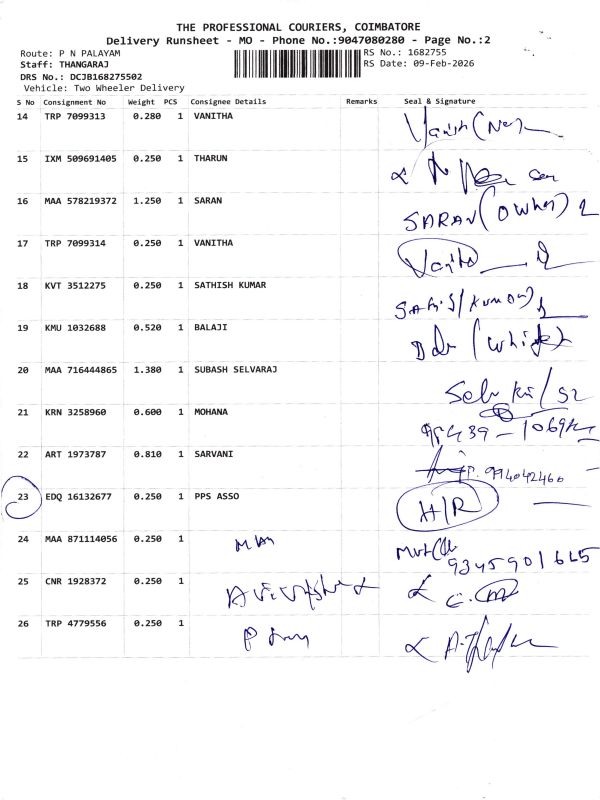 THE PROFESSIONAL COURIERS, COIMBATORE
Delivery Runsheet - MO - Phone No.:9047080280 - Page No.:2
Route: P N PALAYAM
RS No.: 1682755
Staff: THANGARAJ
RS Date: 09-Feb-2026
DRS No.: DCJB168275502
Vehicle: Two Wheeler Delivery
S No Consignment No Weight PCS Consignee Details Remarks Seal & Signature
14 TRP 7099313 0.280 1 VANITHA
15 IXM 509691405 0.250 1 THARUN
16 MAA 578219372 1.250 1 SARAN SARAN (Owner)
17 TRP 7099314 0.250 1 VANITHA Vanitha
18 KVT 3512275 0.250 1 SATHISH KUMAR
19 KMU 1032688 0.520 1 BALAJI
20 MAA 716444865 1.380 1 SUBASH SELVARAJ
21 KRN 3258960 0.600 1 MOHANA
22 ART 1973787 0.810 1 SARVANI 994042460
23 EDQ 16132677 0.250 1 PPS ASSO H/R
24 MAA 871114056 0.250 1 9345901615
25 CNR 1928372 0.250 1
26 TRP 4779556 0.250 1